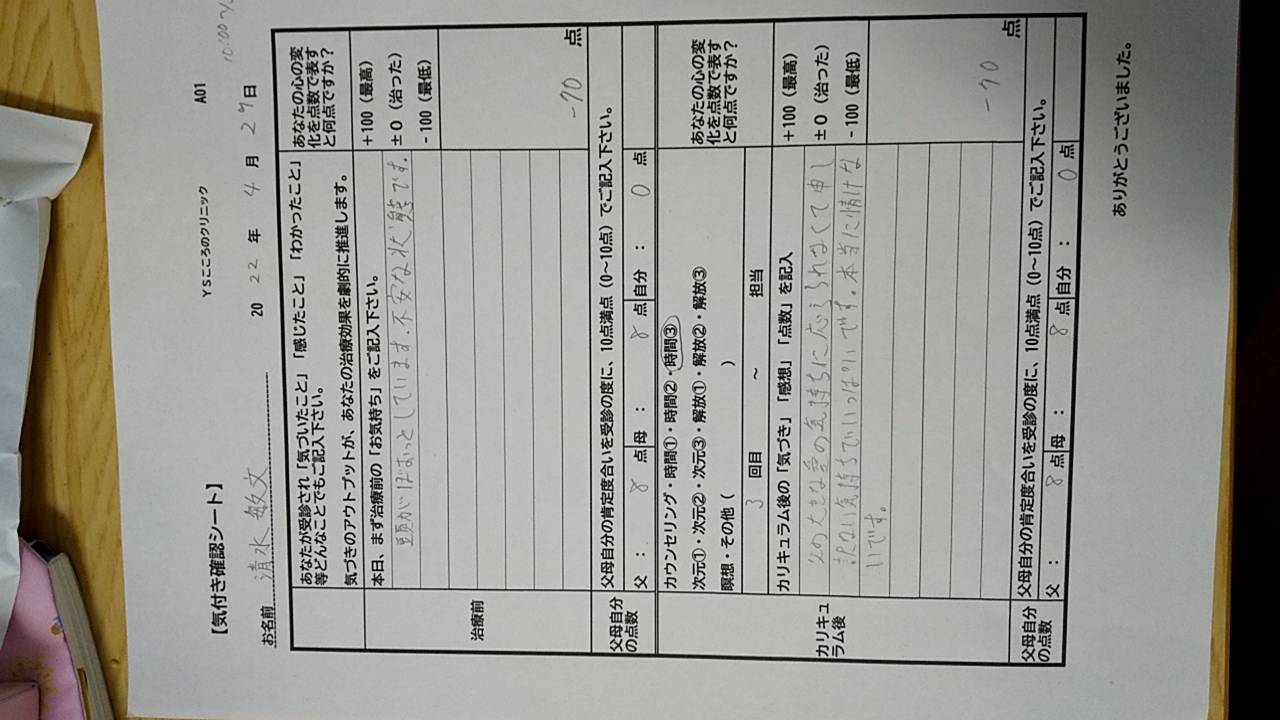 10:00〜
A01
【気付き確認シート】 YSこころのクリニック
お名前 清水 敏文 20 22 年 4 月 27 日
あなたが受診され「気づいたこと」「感じたこと」「わかったこと」
等どんなことでもご記入下さい。
気づきのアウトプットが、あなたの治療効果を劇的に推進します。
あなたの心の変
化を点数で表す
と何点ですか？
治療前
本日、まず治療前の「お気持ち」をご記入下さい。
頭がぼおっとしています。不安な状態です。
+100（最高）
±0（治った）
-100（最低）
-70 点
父母自分
の点数
父母自分の肯定度合いを受診の度に、10点満点（0〜10点）でご記入下さい。
父： 8 点 母： 8 点 自分： 0 点
カリキュ
ラム後
カウンセリング・時間①・時間②・時間③
次元①・次元②・次元③・解放①・解放②・解放③
瞑想・その他（ ）
3 回目 〜 担当
あなたの心の変
化を点数で表す
と何点ですか？
カリキュラム後の「気づき」「感想」「点数」を記入
父の大きな愛の気持ちに応えられなくて申し
訳ない気持ちでいっぱいです。本当に情けな
いです。
+100（最高）
±0（治った）
-100（最低）
-70 点
父母自分
の点数
父母自分の肯定度合いを受診の度に、10点満点（0〜10点）でご記入下さい。
父： 8 点 母： 8 点 自分： 0 点
ありがとうございました。